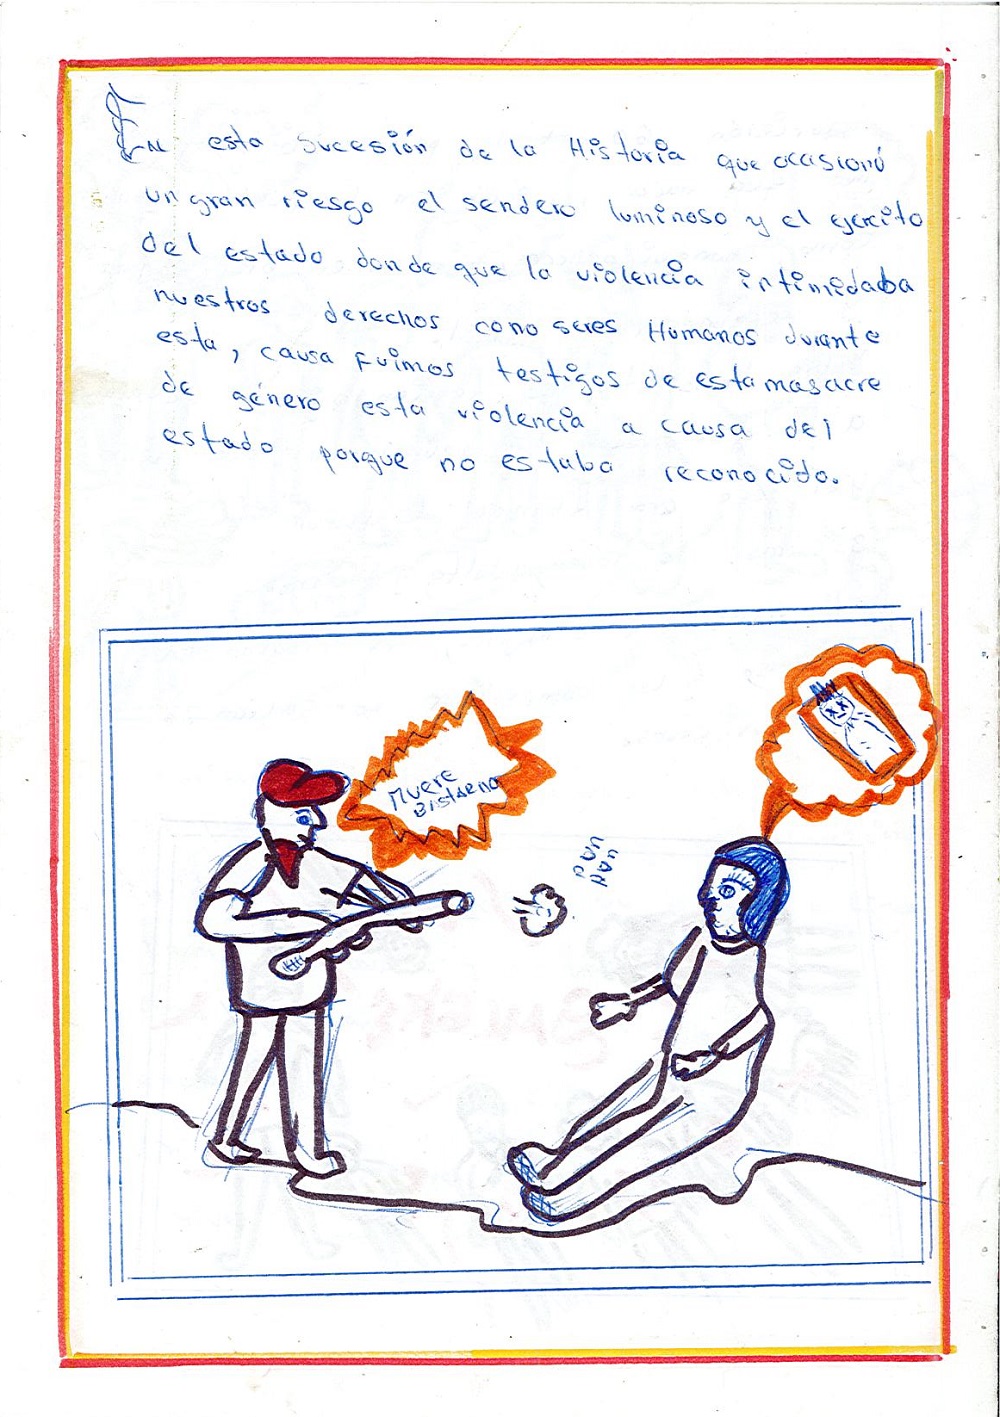 En esta sucesión de la Historia que occasionó
un gran riesgo el sendero luminoso y el ejercito
del estado donde que la violencia intimidaba
nuestros derechos cono seres Humanos durante
esta, causa fuimos testigos de esta masacre
de género esta violencia a causa del
estado porque no estaba reconocido.
Muere